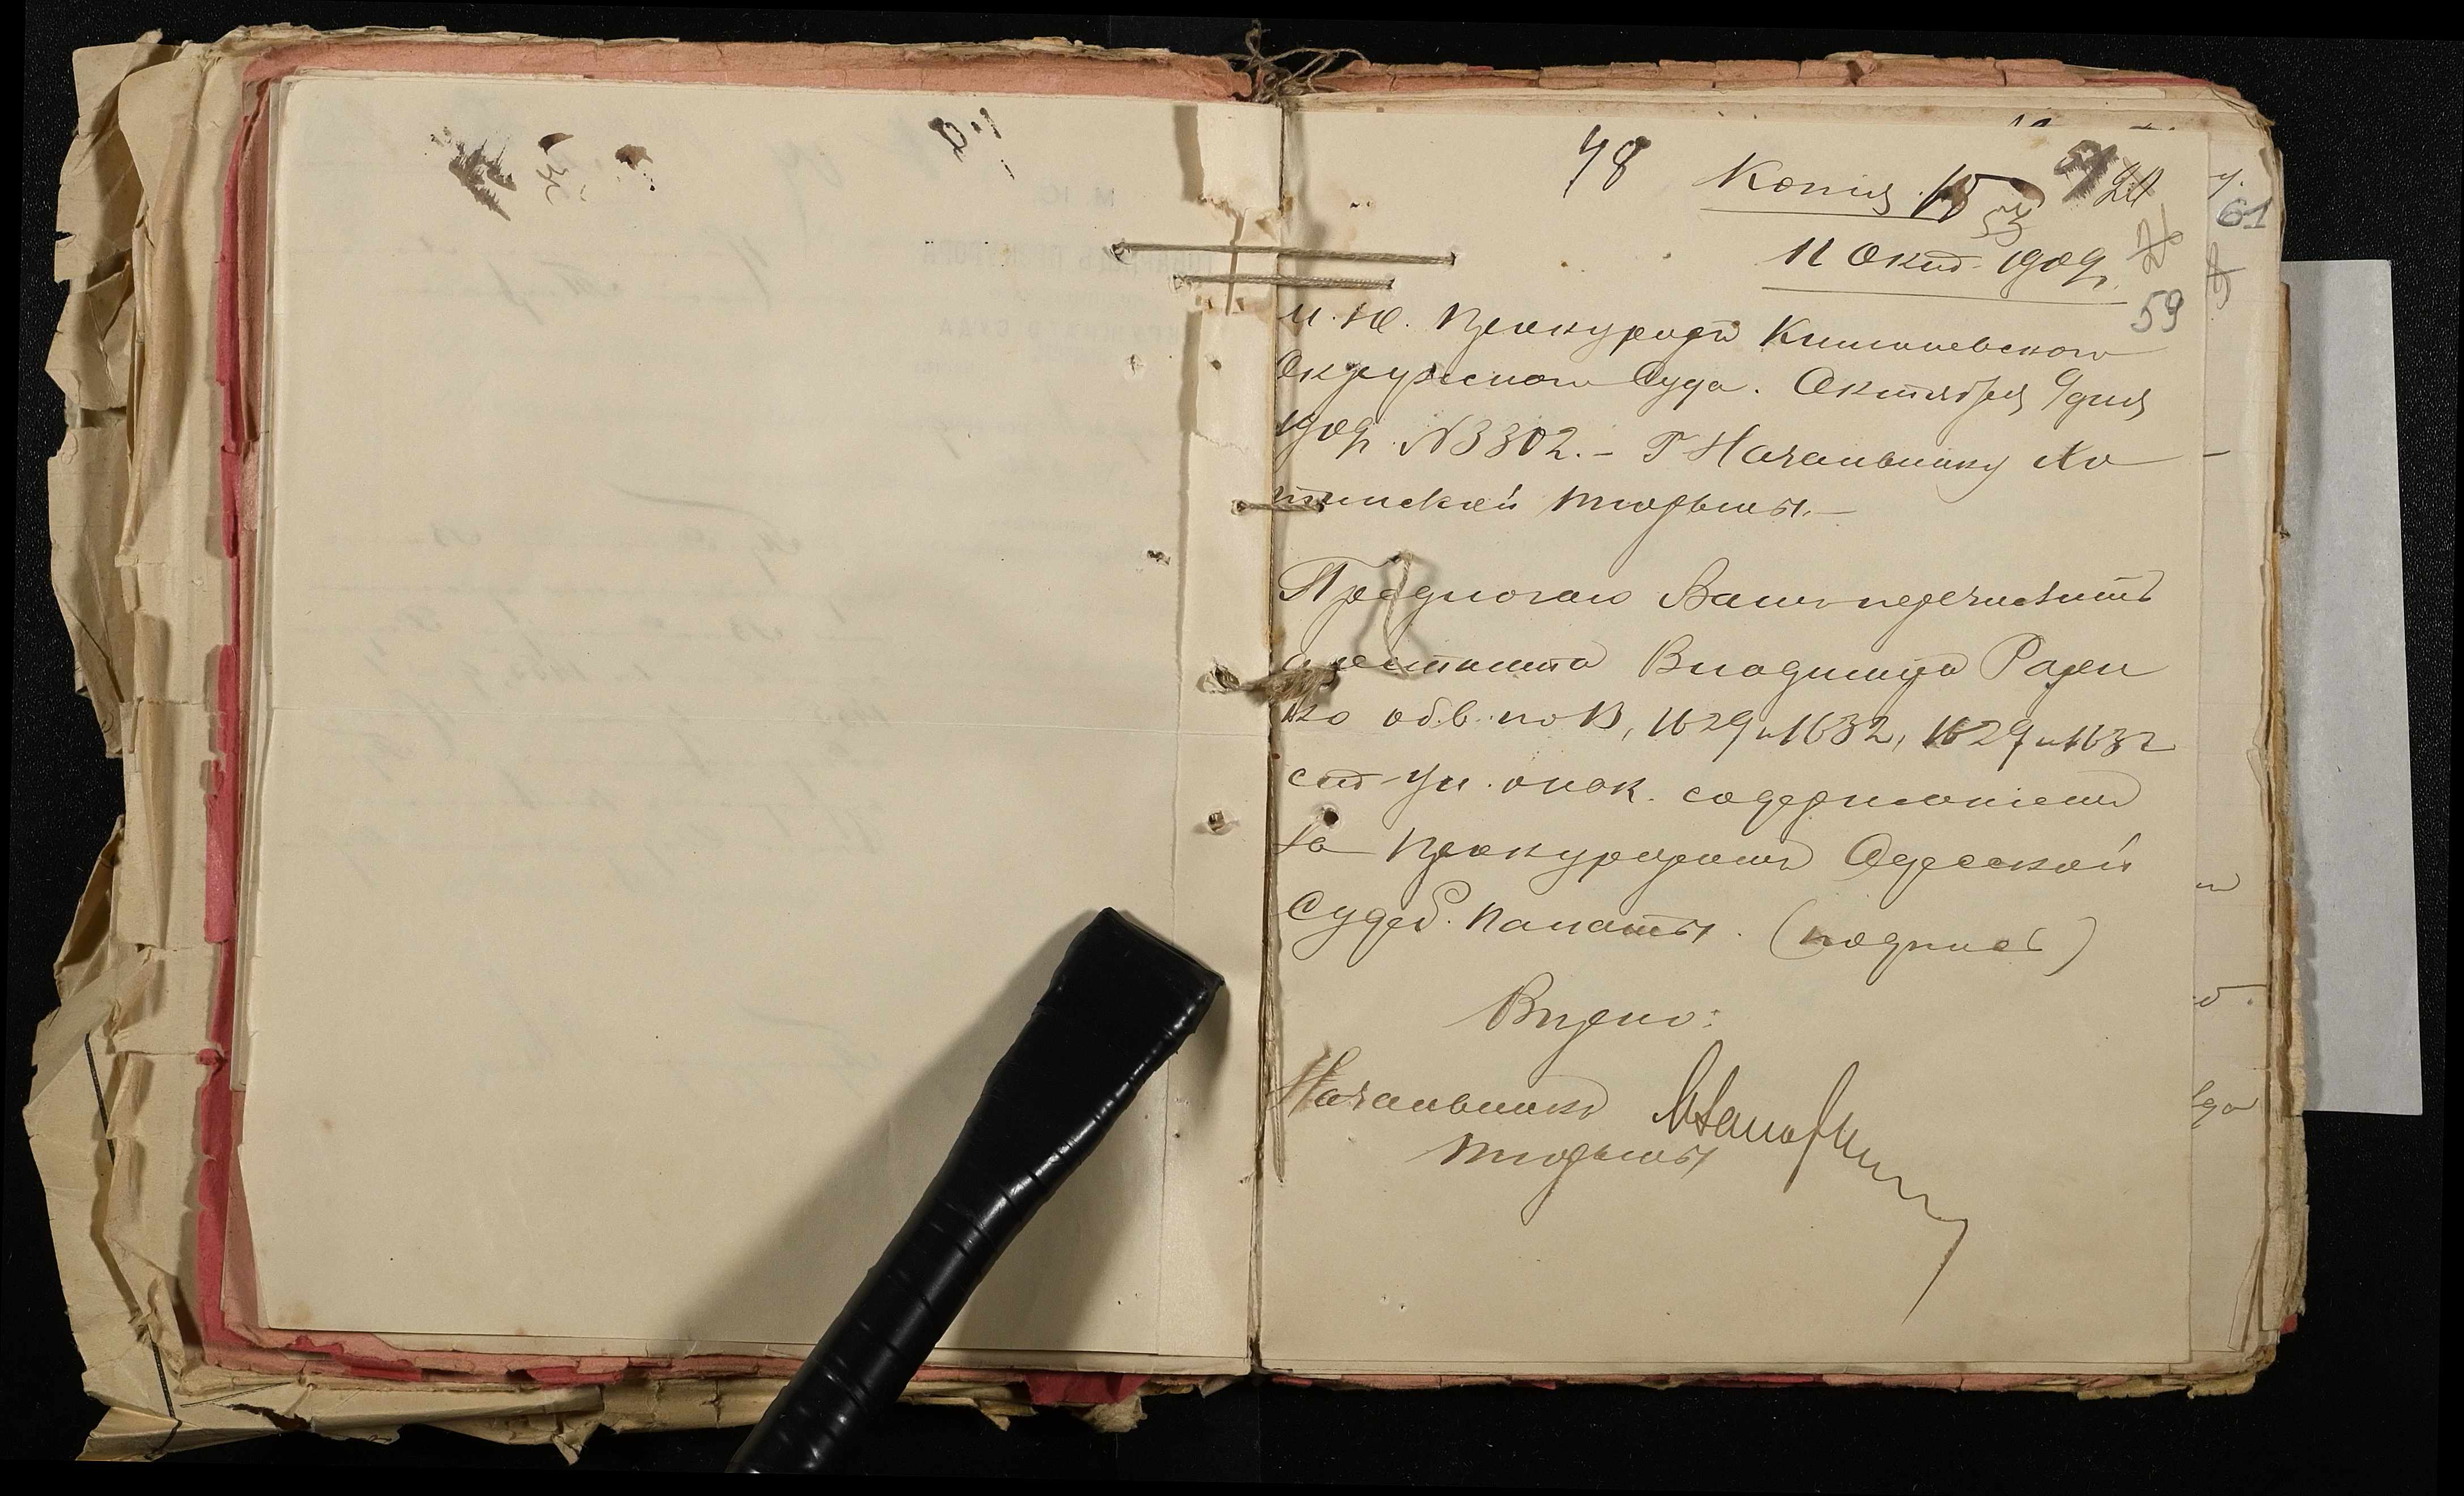 48 Копия 15 24
53
11 Окт. 1909 г.
59
61
М. Ю. Прокуроръ Кишиневскаго
Окружнаго Суда. Октября 9 дня
1909 г. №3302. – Г Начальнику Хо
тинской тюрьмы. –
Предлагаю Вамъ перечислить
арестанта Владимира Рарен
ко обв. по 13, 1629 и 1632, 1627 и 1632
ст Ул. о нак. содержаніемъ
за Прокуроромъ Одесской
Судеб. Палаты. (подпись)
Вѣрно:
Начальникъ
тюрьмы